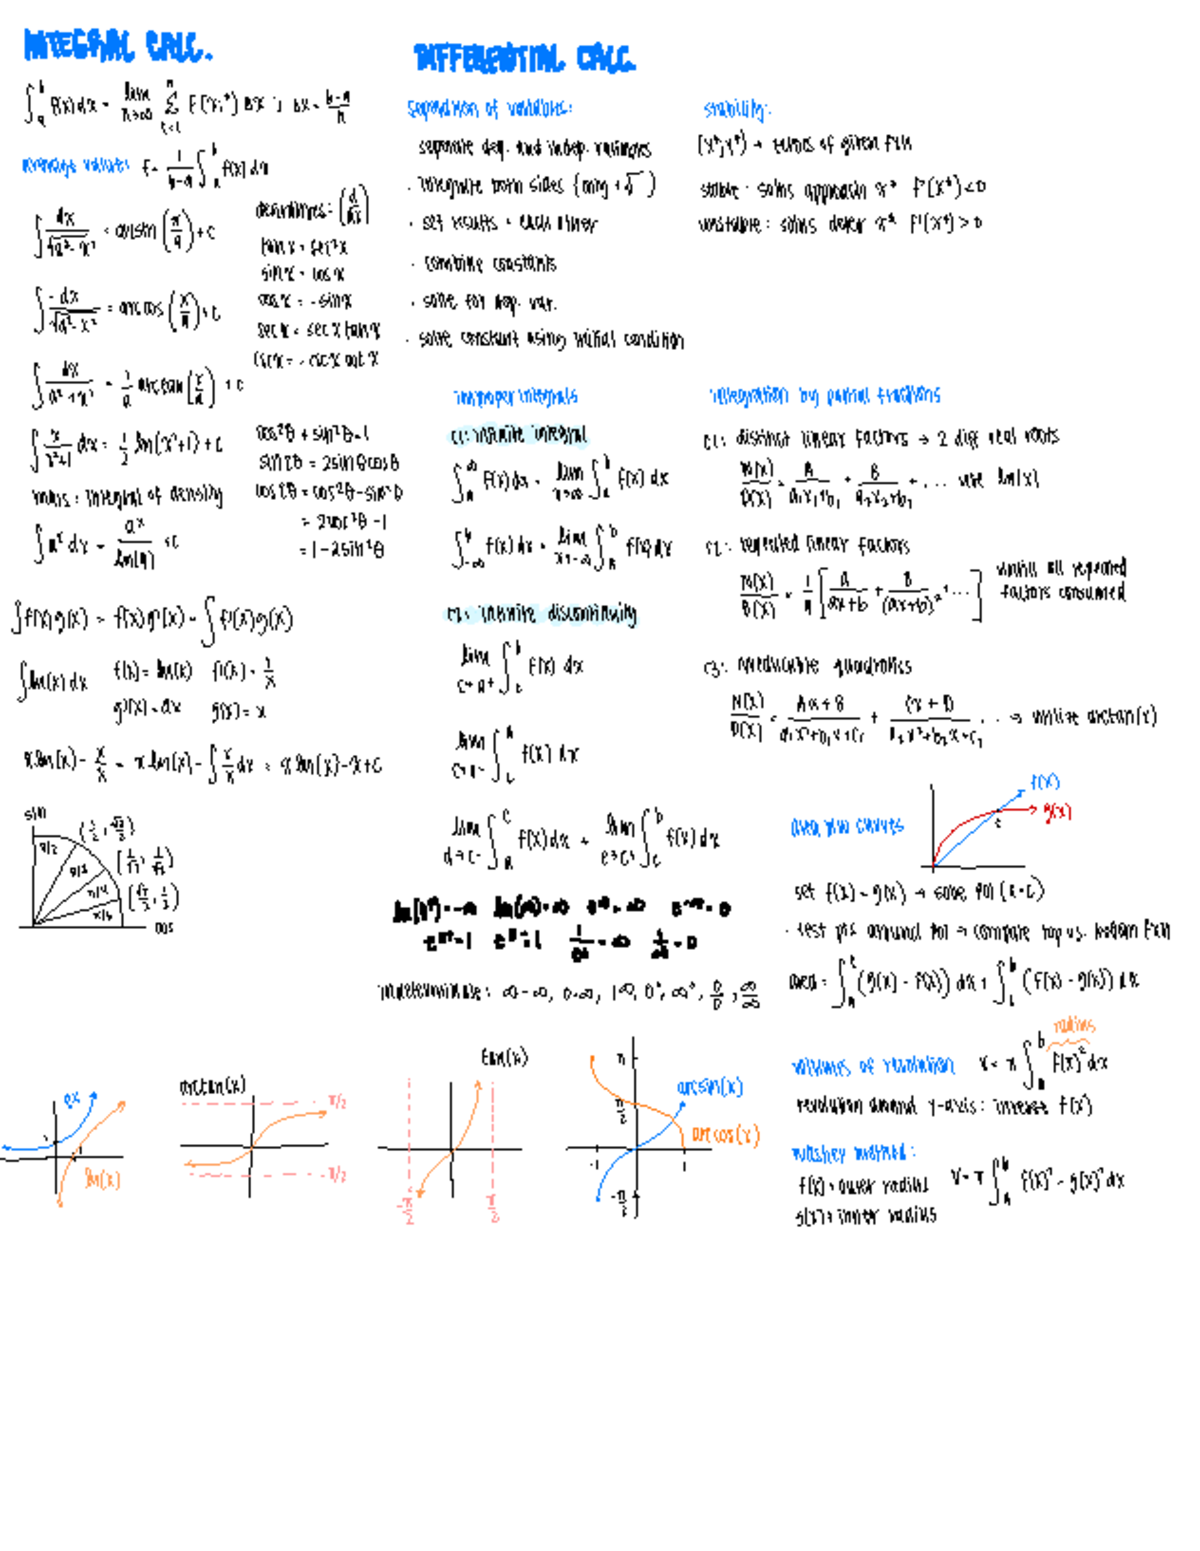 INTEGRAL CALC.
∫_a^b f(x)dx = lim_{n→∞} Σ_{i=1}^n f(xi*) Δx ; Δx = (b-a)/n
average value: f = 1/(b-a) ∫_a^b f(x) dx
∫ dx/√(a²-x²) = arcsin(x/a) + C
∫ -dx/√(a²-x²) = arccos(x/a) + C
∫ dx/(a²+x²) = 1/a arctan(x/a) + C
∫ x/(x²+1) dx = 1/2 ln(x²+1) + C
mass: integral of density
∫ a^x dx = a^x/ln(a) + C
derivatives: (d/dx)
tan x = sec²x
sin x = cos x
cos x = -sin x
sec x = sec x tan x
csc x = -csc x cot x
cos²θ + sin²θ = 1
sin2θ = 2sinθcosθ
cos2θ = cos²θ - sin²θ
= 2cos²θ - 1
= 1 - 2sin²θ
∫f(x)g'(x) = f(x)g(x) - ∫f'(x)g(x)
∫ln(x)dx f(x) = ln(x) f'(x) = 1/x
g'(x) = dx g(x) = x
x ln(x) - x/x = x ln(x) - ∫ x/x dx = x ln(x) - x + C
sin
(1/2, √3/2)
π/2
π/3
(1/√2, 1/√2)
π/4
(√3/2, 1/2)
π/6
cos
DIFFERENTIAL CALC.
separation of variables:
separate dep. and indep. variables
· integrate both sides
· set results =
· combine constants
· solve for dep. var.
· solve constant using initial condition
stability:
(x*, y*) → of given fxn
stable: solns approach x* f'(x*) < 0
unstable: solns x* f'(x*) > 0
improper integrals
c1: infinite integral
∫_a^∞ f(x)dx = lim ∫_a^b f(x) dx
∫_{-∞}^b f(x) dx = lim ∫_a^b f(x)dx
c2: infinite discontinuity
lim_{c→a+} ∫_c^b f(x) dx
lim ∫ f(x) dx
lim_{d→c-} ∫_a f(x)dx + lim_{e→c+} ∫^b f(x)dx
ln(0+) = -∞ ln(∞) = ∞ e^∞ = ∞ e^-∞ = 0
1/0+ = ∞ 1/∞ = 0
indeterminate: ∞-∞, 0·∞, 1^∞, 0^0, ∞^0, 0/0, ∞/∞
integration by partial fractions
c1: distinct linear factors → 2 diff real roots
N(x)/D(x) = A/(a1x+b1) + B/(a2x+b2) + ... use ln(x)
c2: repeated linear factors
N(x)/D(x) = 1/a [A/(ax+b) + B/(ax+b)² + ...] until all repeated factors consumed
c3: irreducible quadratics
N(x)/D(x) = (Ax+B)/(a1x²+b1x+c1) + (Cx+D)/(a2x²+b2x+c2) ... ⇒ utilize arctan(x)
area btw curves
f(x)
g(x)
c
set f(x) = g(x) → solve poi (x=c)
· test pts around poi → compare top vs. bottom fxn
area = ∫_a^c (g(x) - f(x)) dx + ∫_c^b (f(x) - g(x)) dx
radius
volumes of revolution V = π ∫_a^b f(x)² dx
revolution around y-axis: inverse f(x)
washer method:
f(x) = outer radius V = π ∫_a^b f(x)² - g(x)² dx
g(x) = inner radius
e^x
ln(x)
arctan(x)
π/2
-π/2
tan(x)
-π/2
π/2
π
π/2
-π/2
-1
1
arcsin(x)
arccos(x)